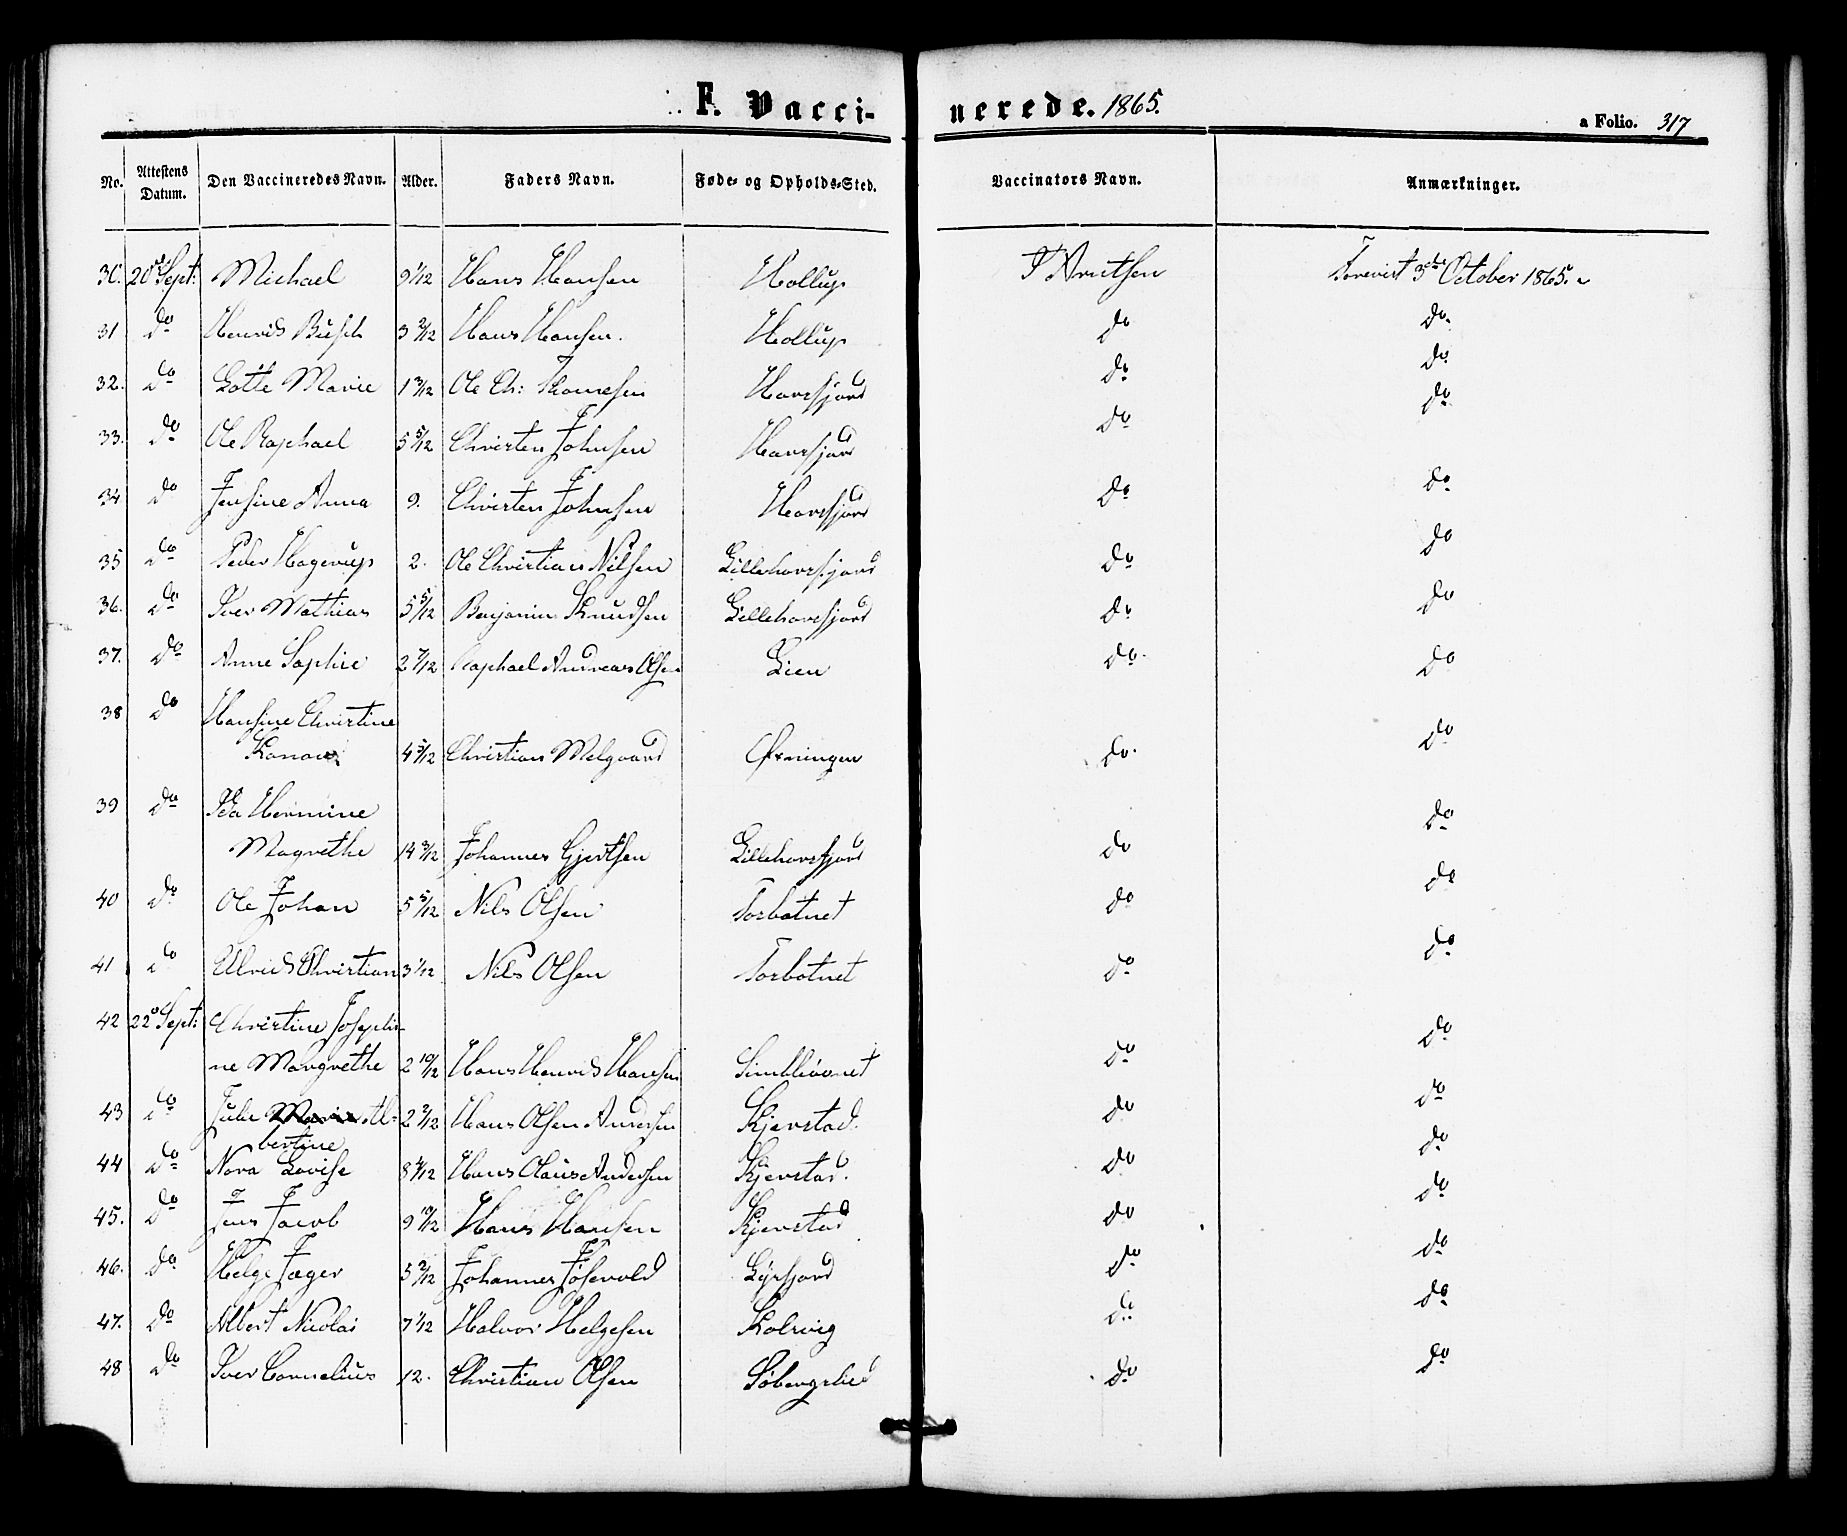 F. Vacci- nerede. 1865.
a Folio. 317
No. Attestens Datum. Den Vaccineredes Navn. Alder. Faders Navn. Føde- og Opholds-Sted. Vaccinators Navn. Anmærkninger.
30. 20de Sept: Michael 9 1/12 Hans Hansen Hollup Forevist 3die October 1865.
31 do Henrik Busch 3 2/12 Hans Hansen. Hollup do do.
32. do Lotte Marie 1 3/12 Ole Ch: Thomesen Havsfjord do do
33. do Ole Raphael 5 5/12 Christen Johnsen Havsfjord do do
34 do Jensine Anna 9. Christen Johnsen Havsfjord do do
35 do Peder Hagerup 2. Ole Christian Nilsen Lillehavsfjord do do
36. do Iver Mathias 5 5/12 Benjamin Knudsen Lillehavsfjord do do
37. do Anne Sophie 2 7/12 Raphael Andreas Olsen Lien do. do
38 do Hansine Christine
Konow 4 5/12 Christian Melgaard Øxningen do. do
39 do Ida Hermine
Magrethe 14 3/12 Johannes Gjertsen Lillehavsfjord do do
40 do Ole Johan 5 5/12 Nils Olsen Torbotnet do do
41 do Ulrik Christian 3 1/12 Nils Olsen Torbotnet do do
42 22de Sept: Christine Josephi-
ne Margrethe 2 10/12 Hans Henrik Hansen do do
43 do Julie Marie Al- 2 2/12 Hans Olsen Andersen Kjerstad. do do
bertine
44 do Nora Lovise 8 4/12 Hans Olaus Andersen Kjerstad. do do
45. do Jens Jacob 9 10/12 Hans Hansen Kjerstad do do
46. do Helge Jæger 5 2/12 Johannes Jøsevold Lyrfjord do do
47. do Albert Nicolai 7 1/12 Halvor Helgesen Kolsvig do do
48 do Iver Cornelius 12. Christian Olsen do do